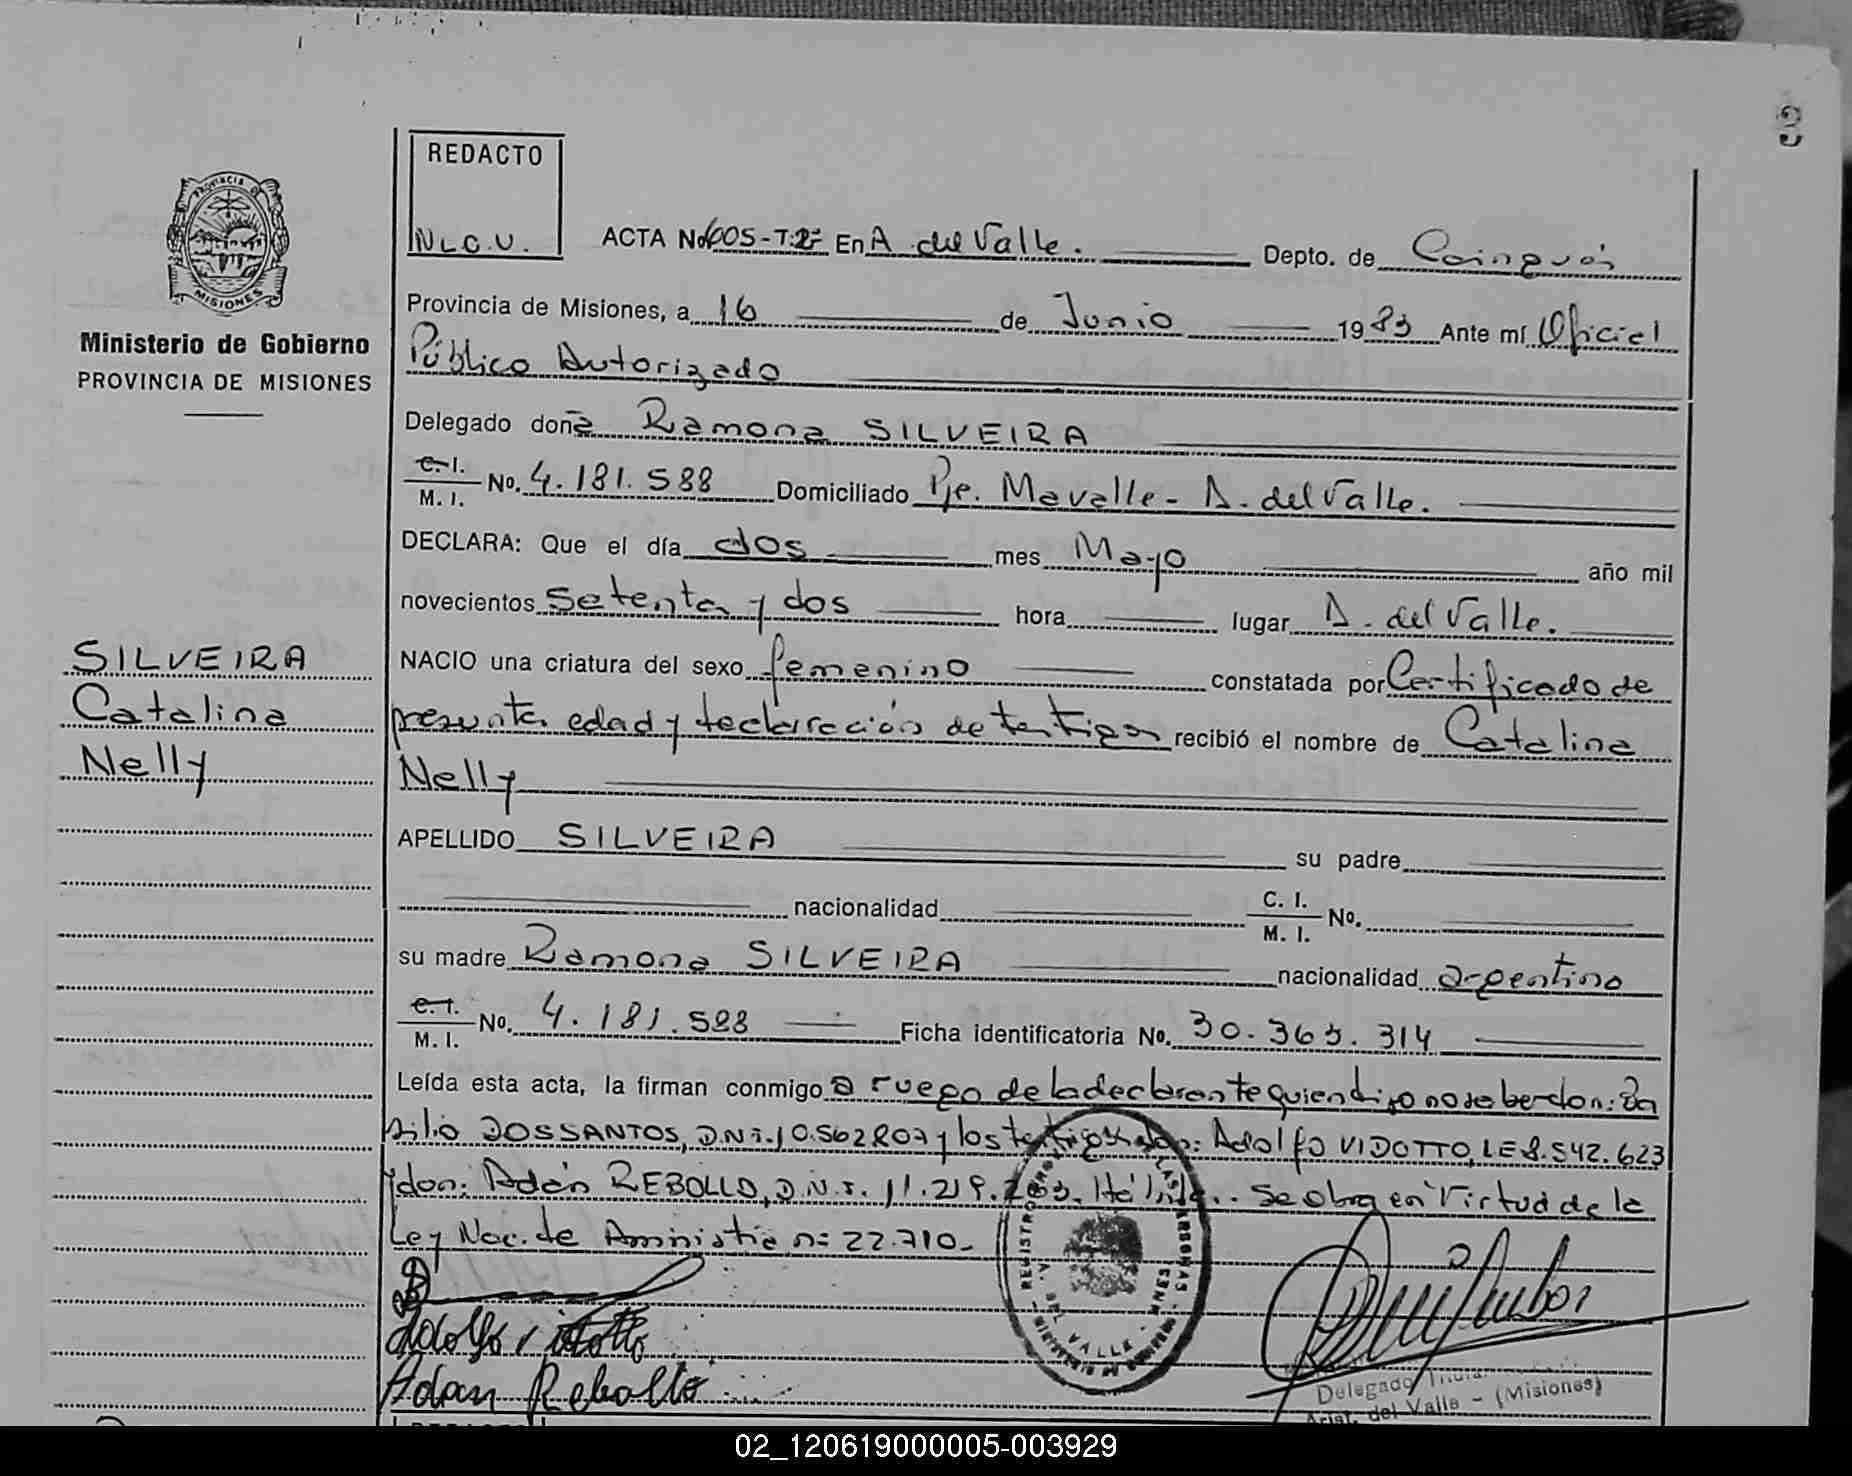 3
REDACTO
N.L.C.V.
ACTA No 605-T:2º En A. del Valle. Depto. de Cainguás
Provincia de Misiones, a 16 de Junio 1983 Ante mí Oficial
Público Autorizado
PROVINCIA DE
MISIONES
Ministerio de Gobierno
PROVINCIA DE MISIONES
Delegado doña Ramona SILVEIRA
C. I.
M. I. No. 4.181.588 Domiciliado Pje. Mavalle - A. del Valle.
DECLARA: Que el día dos mes Mayo año mil
novecientos setenta y dos hora lugar A. del Valle.
SILVEIRA
Catalina
Nelly
NACIO una criatura del sexo femenino constatada por Certificado de
presunta edad y declaración de testigos recibió el nombre de Catalina
Nelly
APELLIDO SILVEIRA su padre
nacionalidad C. I.
M. I. No.
su madre Ramona SILVEIRA nacionalidad argentina
C. I.
M. I. No. 4.181.588 Ficha identificatoria No. 30.363.314
Leída esta acta, la firman conmigo a ruego de la declarante quien dijo no saber don: Ba
silio DOSSANTOS, D.N.I. 10.562.807 y los testigos don: Adolfo VIDOTTO, L.E 8.542.623
y don: Adán REBOLLO, D.N.I. 11.219. Se obra en Virtud de la
Ley Nac. de Aministia nº 22.710.-
Adolfo Vidotto
Adan Rebollo
REGISTRO PROV. LAS PERSONAS
A. DEL VALLE
MISIONES
Delegado
Arist. del Valle - (Misiones)
02_120619000005-003929